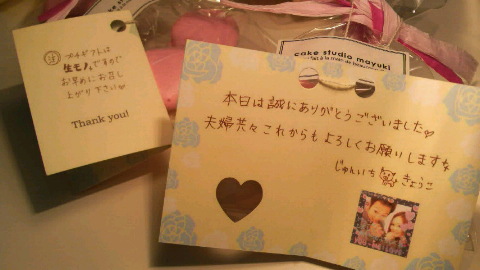 注
プチギフトは
生モノですので
お早めにお召し
上がり下さい♡
Thank you!
cake studio mayuki
本日は誠にありがとうございました♡
夫婦共々これからもよろしくお願いします
じゅんいち きょうこ